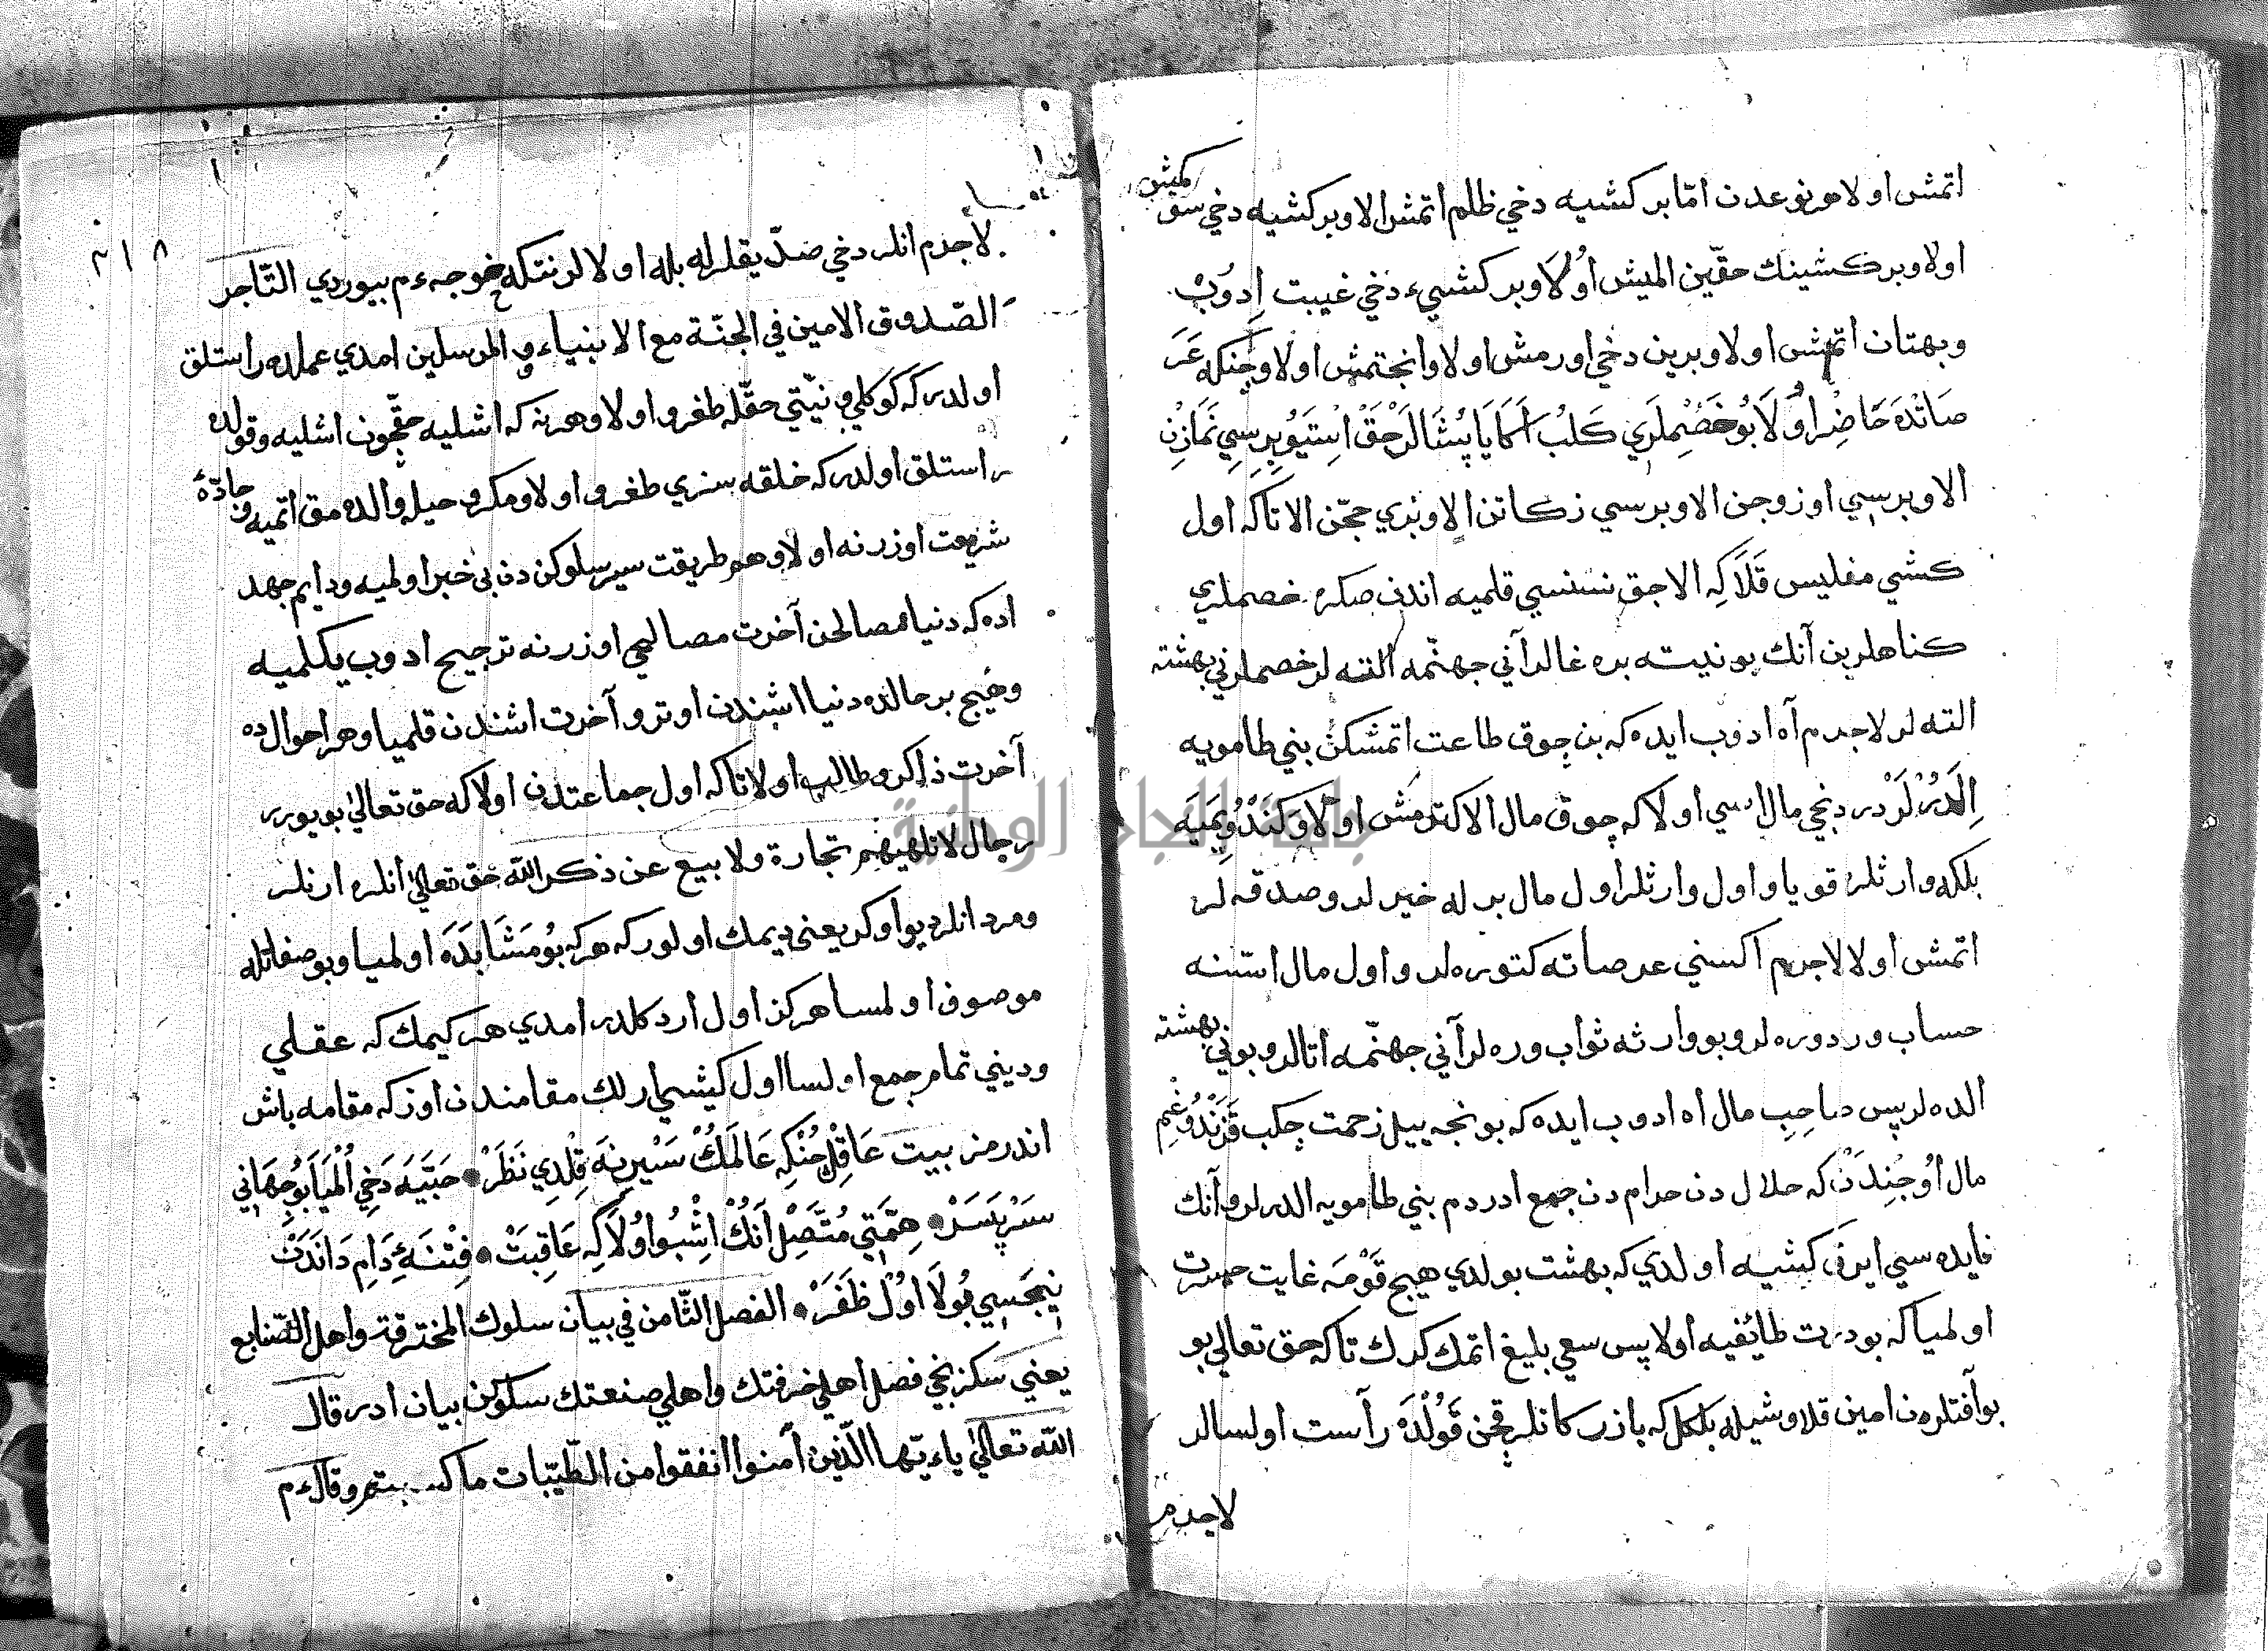 اتمش اولا هر نوعدن امّا بر كشيه دخي ظلم اتمش الا وبر كشيه دخي سوكمش
اولا وبر كشينك حقّين الميش اُولَا وبر كشيء دخي غيبت اِدوُبْ
وبهتان اتمش اولا وبرين دخي اورمش اولا وانجتمش اولا وچنكه عَرَ
صَاتْدَه حَاضِر اوُلَا بُو خَصْملَرِي كَلُبْ اَكَا يَاپِشَالَرْ حَقّ اسْتَيُو بِرِسِي نَمَازِنْ
الا وبرسي اوزوجن الا وبرسي زكاتن الا وبري حجّن الا تاكه اول
كشي مفليس قَلَا كِه الاجق نسنسي قلميه اندن صكره خصملري
كناهلرين آنك بوينيته بره غالر آني جهنّمه التنه لر خصملرني بهشته
التنه لر لاجرم آه ادوب ايده كه بن چوق طاعت اتمشكن بني طامويه
اِلَدُرْلَرْ در دخي مال اسي اولا كه چوق مال الا كتورمش اولا وكَنْدُو يِمَيَه
بلكه وارثلره قويا واول وارثلر اول مال برله خيرلر وصدقه لر
اتمش اولا لاجرم اكسني عرصاته كتوره لر واول مال استنه
حساب وردوره لر وبو وارثه ثواب وره لر آني جهنّمه اتالر وبوني بهشته
الده لر پس صاحِبِ مال اه ادوب ايده كه بو نجه ييل زحمت چكب قَزَنْدُوغِم
مال اُوجُنِدَنْ كه حلال دن حرام دن جمع ادردم بني طامويه الدرلر وآنك
فايده سي ايرقي كيشيه اولدي كه بهشت بولدي هيچ قَوْمَه غايت حسرت
اولميا كه بو درت طائفيه اولا پس سعي بليغ اتمك كرك تاكه حق تعالي بو
بو آفتلردن امين قلا وشيله بلكل كه بازركانلر قچن قَوْلْدَه راست اولسالر
لاجرم
لاجرم انلر دخي صدّيقلرله بله اولالر نتكه خوجه ءم بيوردي التّاجر
الصّدوق الامين في الجنّة مع الانبياء و المرسلين امدي عملده راستلق
اولدر كه كوكلي و نيّتي حقّله طغرو اولا وهر نه كه اشليه حقچون اشليه وقولده
راستلق اولدر كه خلقه سزي طغرو اولا ومكر و حيله والدامق اتميه و جادّهٔ
شريعت اوزرنه اولا وهم طريقت سير سلوكن دن بي خبر اولميه ودايم جهد
اده كه دنيا مصالحن آخرت مصالحي اوزرنه ترجيح ادوب يكلميه
وهيچ بر حالده دنيا اشندن اوترو آخرت اشندن قلميا وهر احوالده
آخرت ذاكر وطالب اولا تاكه اول جماعتدن اولا كه حق تعالى بويورر
رجال لا تلهيهم تجارة ولا بيع عن ذكر الله حق تعالى انلره ارنلر
ومردانلر ديو اوكر يعنى ديمك اولور كه هر كه بُو مَثَابَدَه اولميا وبو صفاتله
موصوف اولمسا هركز اول ارد كلدر امدي هر كيمك كه عقلي
وديني تمام جمع اولسا اول كيشي ارلك مقامندن اوزكه مقامه باش
اندرمز بيت عَاقِلْ چُنْكِه عَالَمُكْ سَيْرِنَه قِلْدِي نَظَرْ ۰ حَبَّيَه دَخِي اَلْمَيَا بُو جِهَانِي
سَرْبَسَرْ ۰ هِمَّتِي مُتَّصِلْ اَنُكْ اشْبُو اوُلَا كِه عَاقِبَتْ ۰ فِتْنَهٔ دَامِ دَانَدَنْ
نِيجَسِي بُولَا اوُلْ ظَفَرْ ۰ الفصل الثّامن في بيان سلوك المحترقة واهل الصّنايع
يعني سكزنجي فصل اهلي حرفتك واهلي صنعتك سلوكن بيان ادر قال
الله تعالى ياءيّها الّذين آمنوا انفقوا من الطّيّبات ما كسبتم وقال ءم